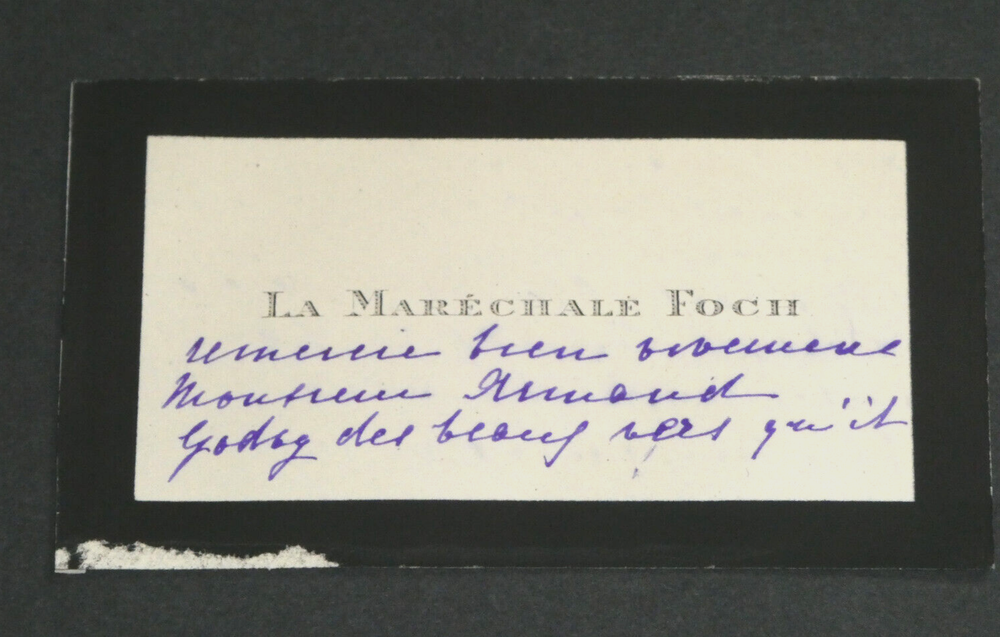 LA MARÉCHALE FOCH
remercie bien vivement
Monsieur Armand
Godoy des beaux vers qu'il